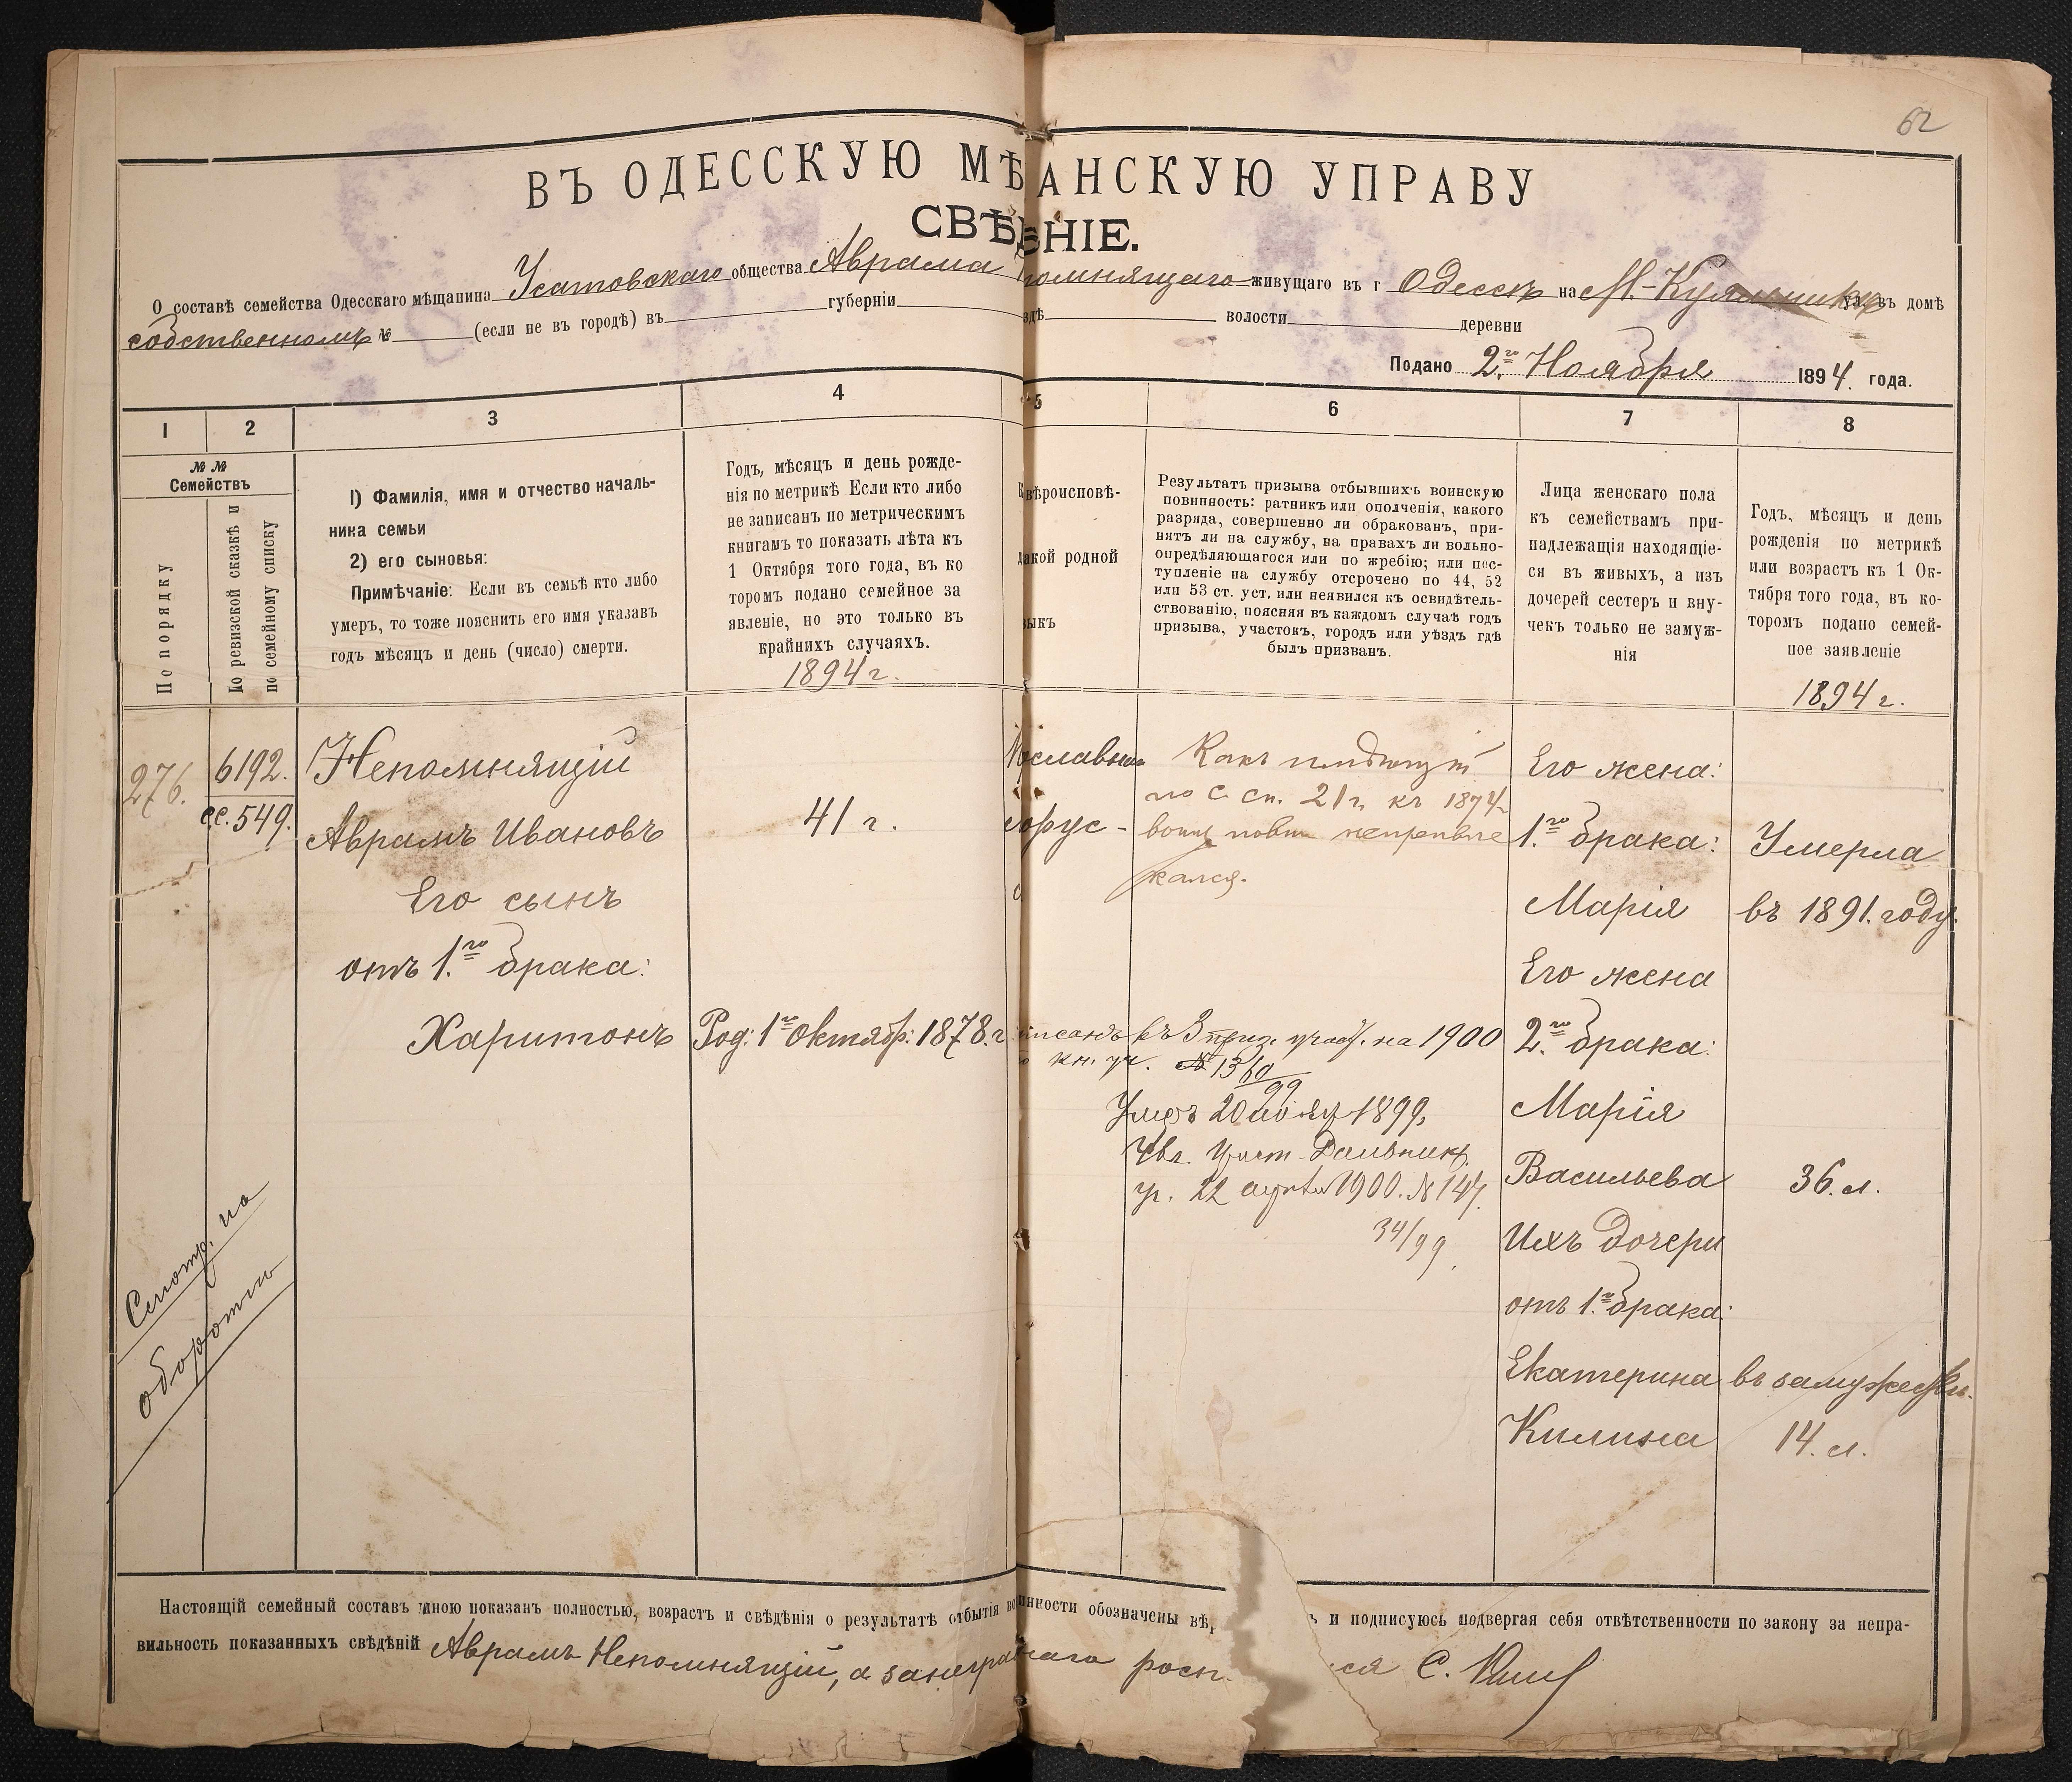 62
ВЪ ОДЕССКУЮ МѢАНСКУЮ УПРАВУ
СВѢНІЕ.
О составѣ семейства Одесскаго мѣщанина Усатовскаго общества Аврама помнящаго живущаго въ г Одессѣ на М.-Куяльникѣ ул. въ домѣ
собственномъ № (если не въ городѣ) въ губерніи здѣ волости деревни
Подано 2го Ноября 1894. года.
1 2 3 4 5 6 7 8
№ № Семействъ
По порядку
По ревизской сказкѣ и по семейному списку
1) Фамилія, имя и отчество началь-
ника семьи
2) его сыновья:
Примѣчаніе: Если въ семьѣ кто либо
умеръ, то тоже пояснить его имя указавъ
годъ мѣсяцъ и день (число) смерти.
Годъ, мѣсяцъ и день рожде-
нія по метрикѣ Если кто либо
не записанъ по метрическимъ
книгамъ то показать лѣта къ
1 Октября того года, въ ко
торомъ подано семейное за
явленіе, но это только въ
крайнихъ случаяхъ.
1894 г.
вѣроисповѣ-
акой родной
зыкъ
Результатъ призыва отбывшихъ воинскую
повинность: ратникъ или ополченія, какого
разряда, совершенно ли обракованъ, при-
нятъ ли на службу, на правахъ ли вольно-
опредѣляющагося или по жребію; или пос-
тупленіе на службу отсрочено по 44, 52
или 53 ст. уст. или неявился къ освидѣтель-
ствованію, поясняя въ каждомъ случаѣ годъ
призыва, участокъ, городъ или уѣздъ гдѣ
былъ призванъ.
Лица женскаго пола
къ семействамъ при-
надлежащія находящіе-
ся въ живыхъ, а изъ
дочерей сестеръ и вну-
чекъ только не замуж-
нія
Годъ, мѣсяцъ и день
рожденія по метрикѣ
или возрастъ къ 1 Ок-
тября того года, въ ко-
торомъ подано семей-
ное заявленіе
1894 г.
276.
6192.
сс. 549.
Непомнящій
Аврамъ Ивановъ
Его сынъ
отъ 1.го брака:
Харитонъ
41 г.
Род: 1го Октябр: 1878. г.
ославн
орус-
Какъ
по с. сп. 21 г. къ 1874
воин повин
кался.
писанъ въ 3 приз. участ. на 1900
кн. уч. № 1360/99
Умеръ 20 1899,
Участ. Дальник.
1900. № 147.
34/99
Его жена:
1.го брака:
Марія
Его жена
2.го брака:
Марія
Васильева
Ихъ дочери
отъ 1.го брака:
Екатерина
Килина
Умерла
въ 1891. году.
36. л.
въ замужеств.
14. л.
Смотр. на
оборотѣ
Настоящій семейный составъ мною показанъ полностью, возрастъ и свѣдѣнія о результатѣ отбытія во инности обозначены вѣр ъ и подписуюсь подвергая себя отвѣтственности по закону за непра-
вильность показанныхъ свѣдѣній Аврамъ Непомнящій, а за неграмотнаго росп ся С.